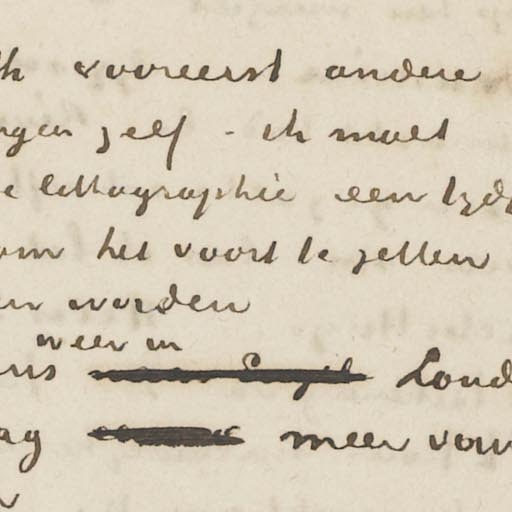 vooreerst andere
zelf - ik moet
lithographie een tyd
om het voort te zetten
en worden
weer in
ens Lond
ag meer van